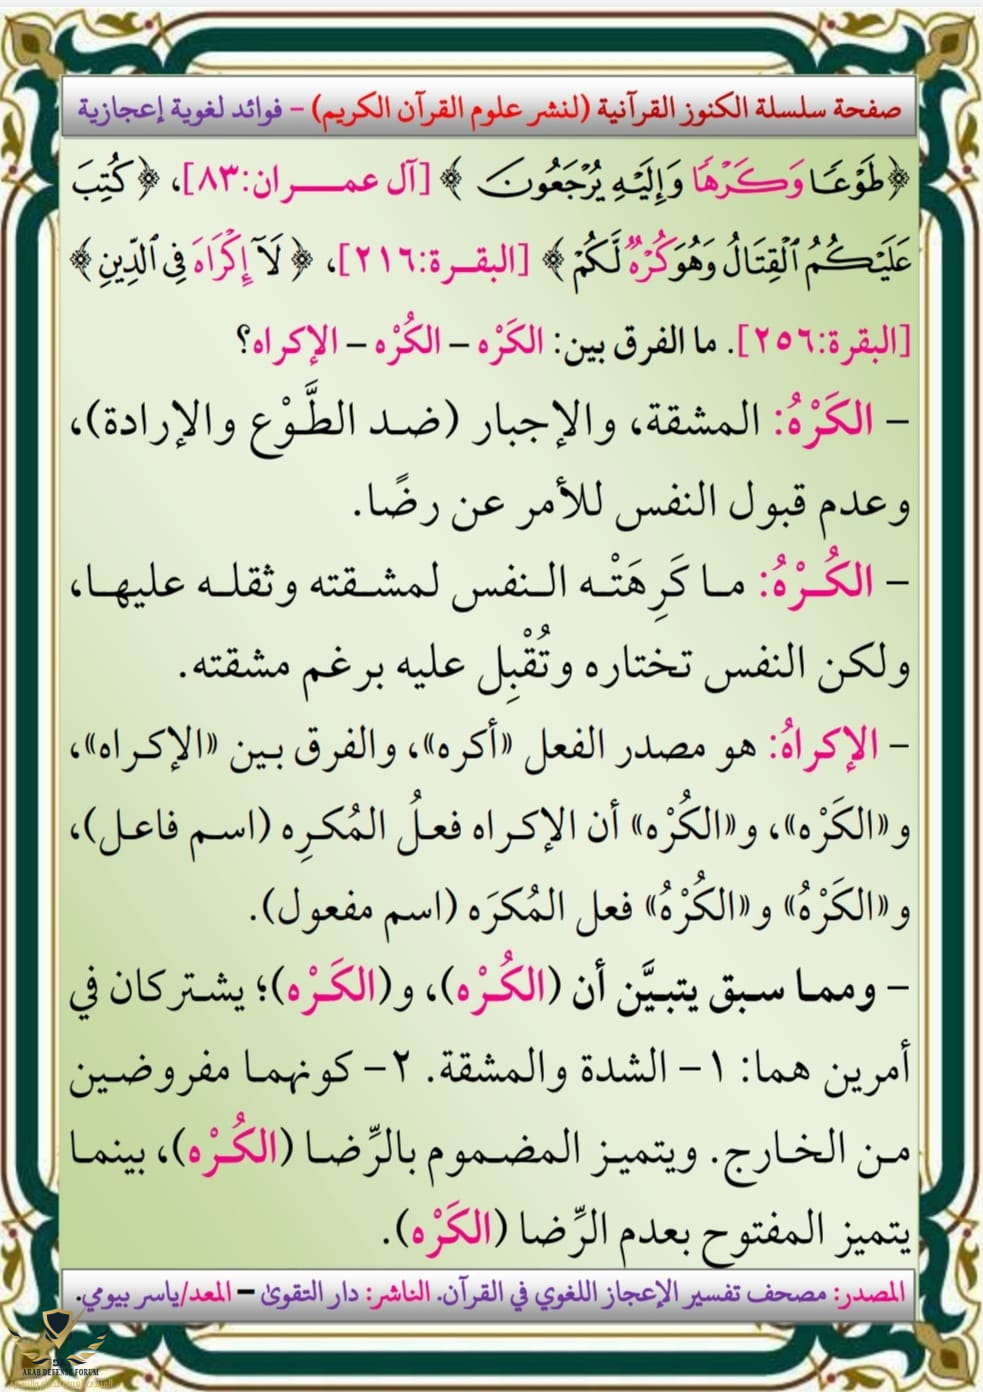 صفحة سلسلة الكنوز القرآنية (لنشر علوم القرآن الكريم) – فوائد لغوية إعجازية
﴿طَوْعًا وَكَرْهًا وَإِلَيْهِ يُرْجَعُونَ﴾ [آل عمران:٨٣]، ﴿كُتِبَ
عَلَيْكُمُ ٱلْقِتَالُ وَهُوَ كُرْهٌ لَّكُمْ﴾ [البقرة:٢١٦]، ﴿لَآ إِكْرَاهَ فِى ٱلدِّينِ﴾
[البقرة:٢٥٦]. ما الفرق بين: الكَرْه – الكُرْه – الإكراه؟
– الكَرْهُ: المشقة، والإجبار (ضد الطَّوْع والإرادة)،
وعدم قبول النفس للأمر عن رضًا.
– الكُرْهُ: ما كَرِهَتْه النفس لمشقته وثقله عليها،
ولكن النفس تختاره وتُقْبِل عليه برغم مشقته.
– الإكراهُ: هو مصدر الفعل «أكره»، والفرق بين «الإكراه»،
و«الكَرْه»، و«الكُرْه» أن الإكراه فعلُ المُكرِه (اسم فاعل)،
و«الكَرْهُ» و«الكُرْهُ» فعل المُكرَه (اسم مفعول).
– ومما سبق يتبيَّن أن (الكُرْه)، و(الكَرْه)؛ يشتركان في
أمرين هما: ١– الشدة والمشقة. ٢– كونهما مفروضين
من الخارج. ويتميز المضموم بالرِّضا (الكُرْه)، بينما
يتميز المفتوح بعدم الرِّضا (الكَرْه).
المصدر: مصحف تفسير الإعجاز اللغوي في القرآن. الناشر: دار التقوىٰ – المعد/ياسر بيومي.
ARAB DEFENSE FORUM